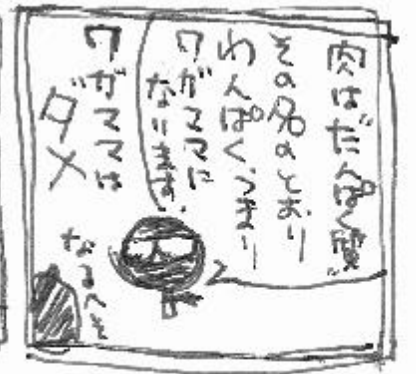 肉はだんぱく質
その名のとおり
わんぱく、つまり
ワガママに
なります。
ワガママは
ダメ
なるへそ